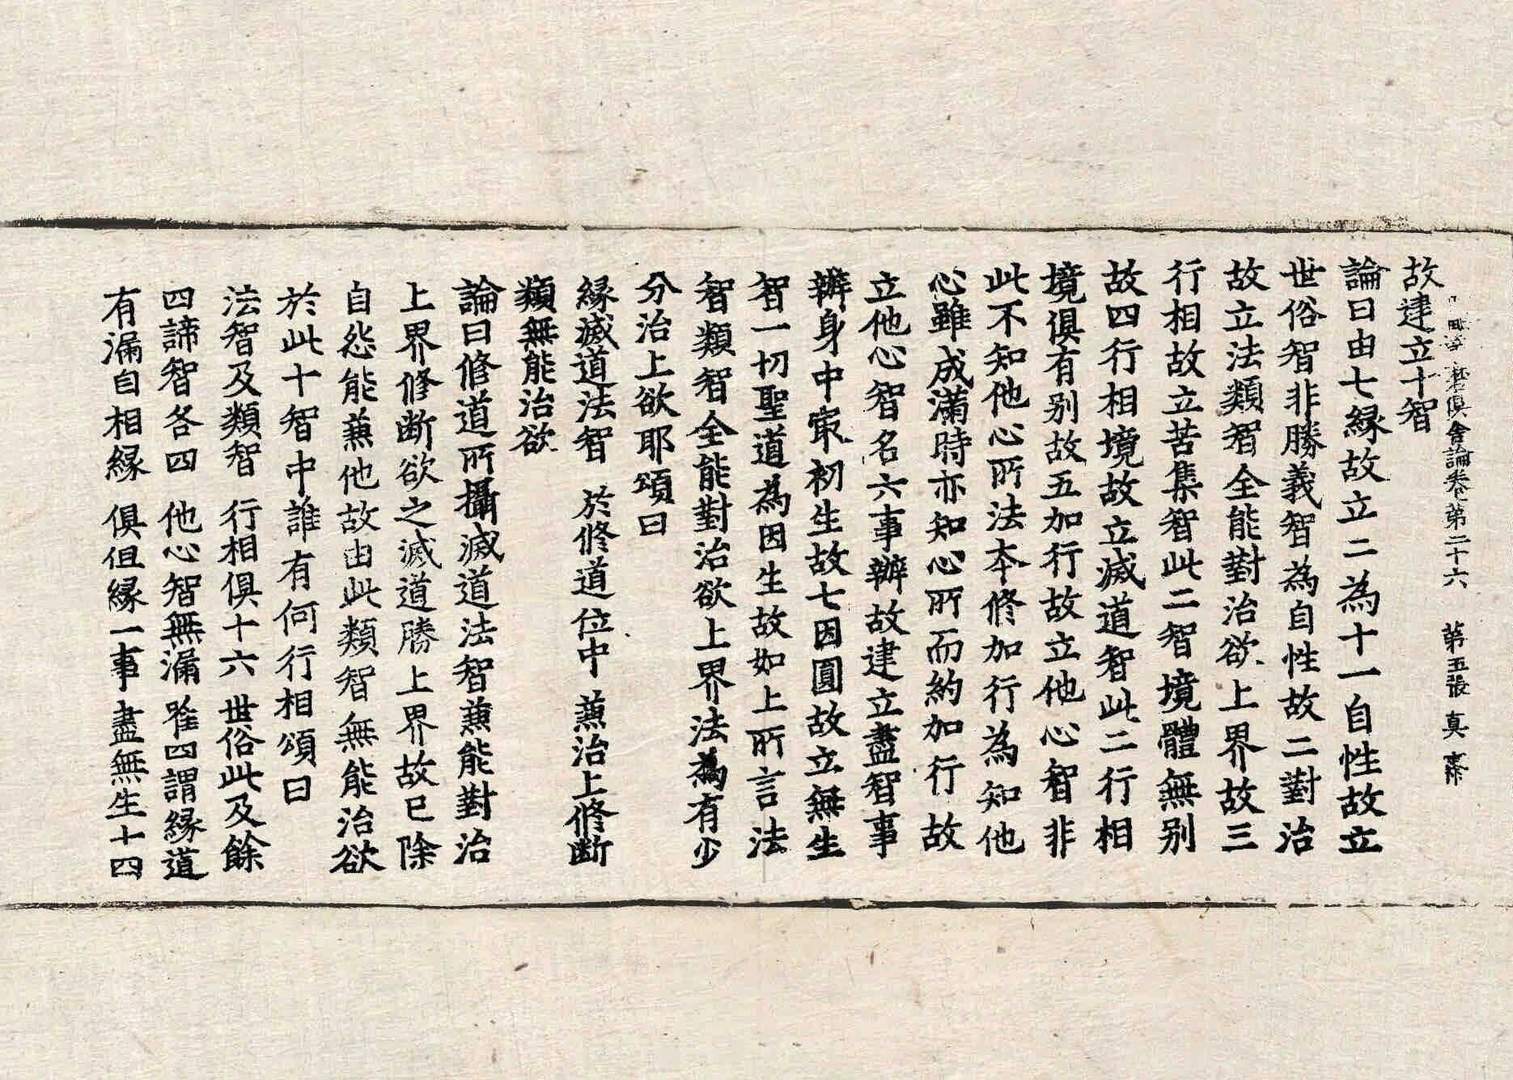 磨俱舍論卷第二十六　第五張　真
故建立十智
論曰由七緣故立二為十一自性故立
世俗智非勝義智為自性故二對治
故立法類智全能對治欲上界故三
行相故立苦集智此二智境體無別
故四行相境故立滅道智此二行相
境俱有別故五加行故立他心智非
此不知他心所法本修加行為知他
心雖成滿時亦知心所而約加行故
立他心智名六事辦故建立盡智事
辦身中㝡初生故七因圓故立無生
智一切聖道為因生故如上所言法
智類智全能對治欲上界法為有少
分治上欲耶頌曰
緣滅道法智　於修道位中　兼治上修斷
類無能治欲
論曰修道所攝滅道法智兼能對治
上界修斷欲之滅道勝上界故已除
自怨能兼他故由此類智無能治欲
於此十智中誰有何行相頌曰
法智及類智　行相俱十六　世俗此及餘
四諦智各四　他心智無漏　唯四謂緣道
有漏自相緣　俱但緣一事　盡無生十四